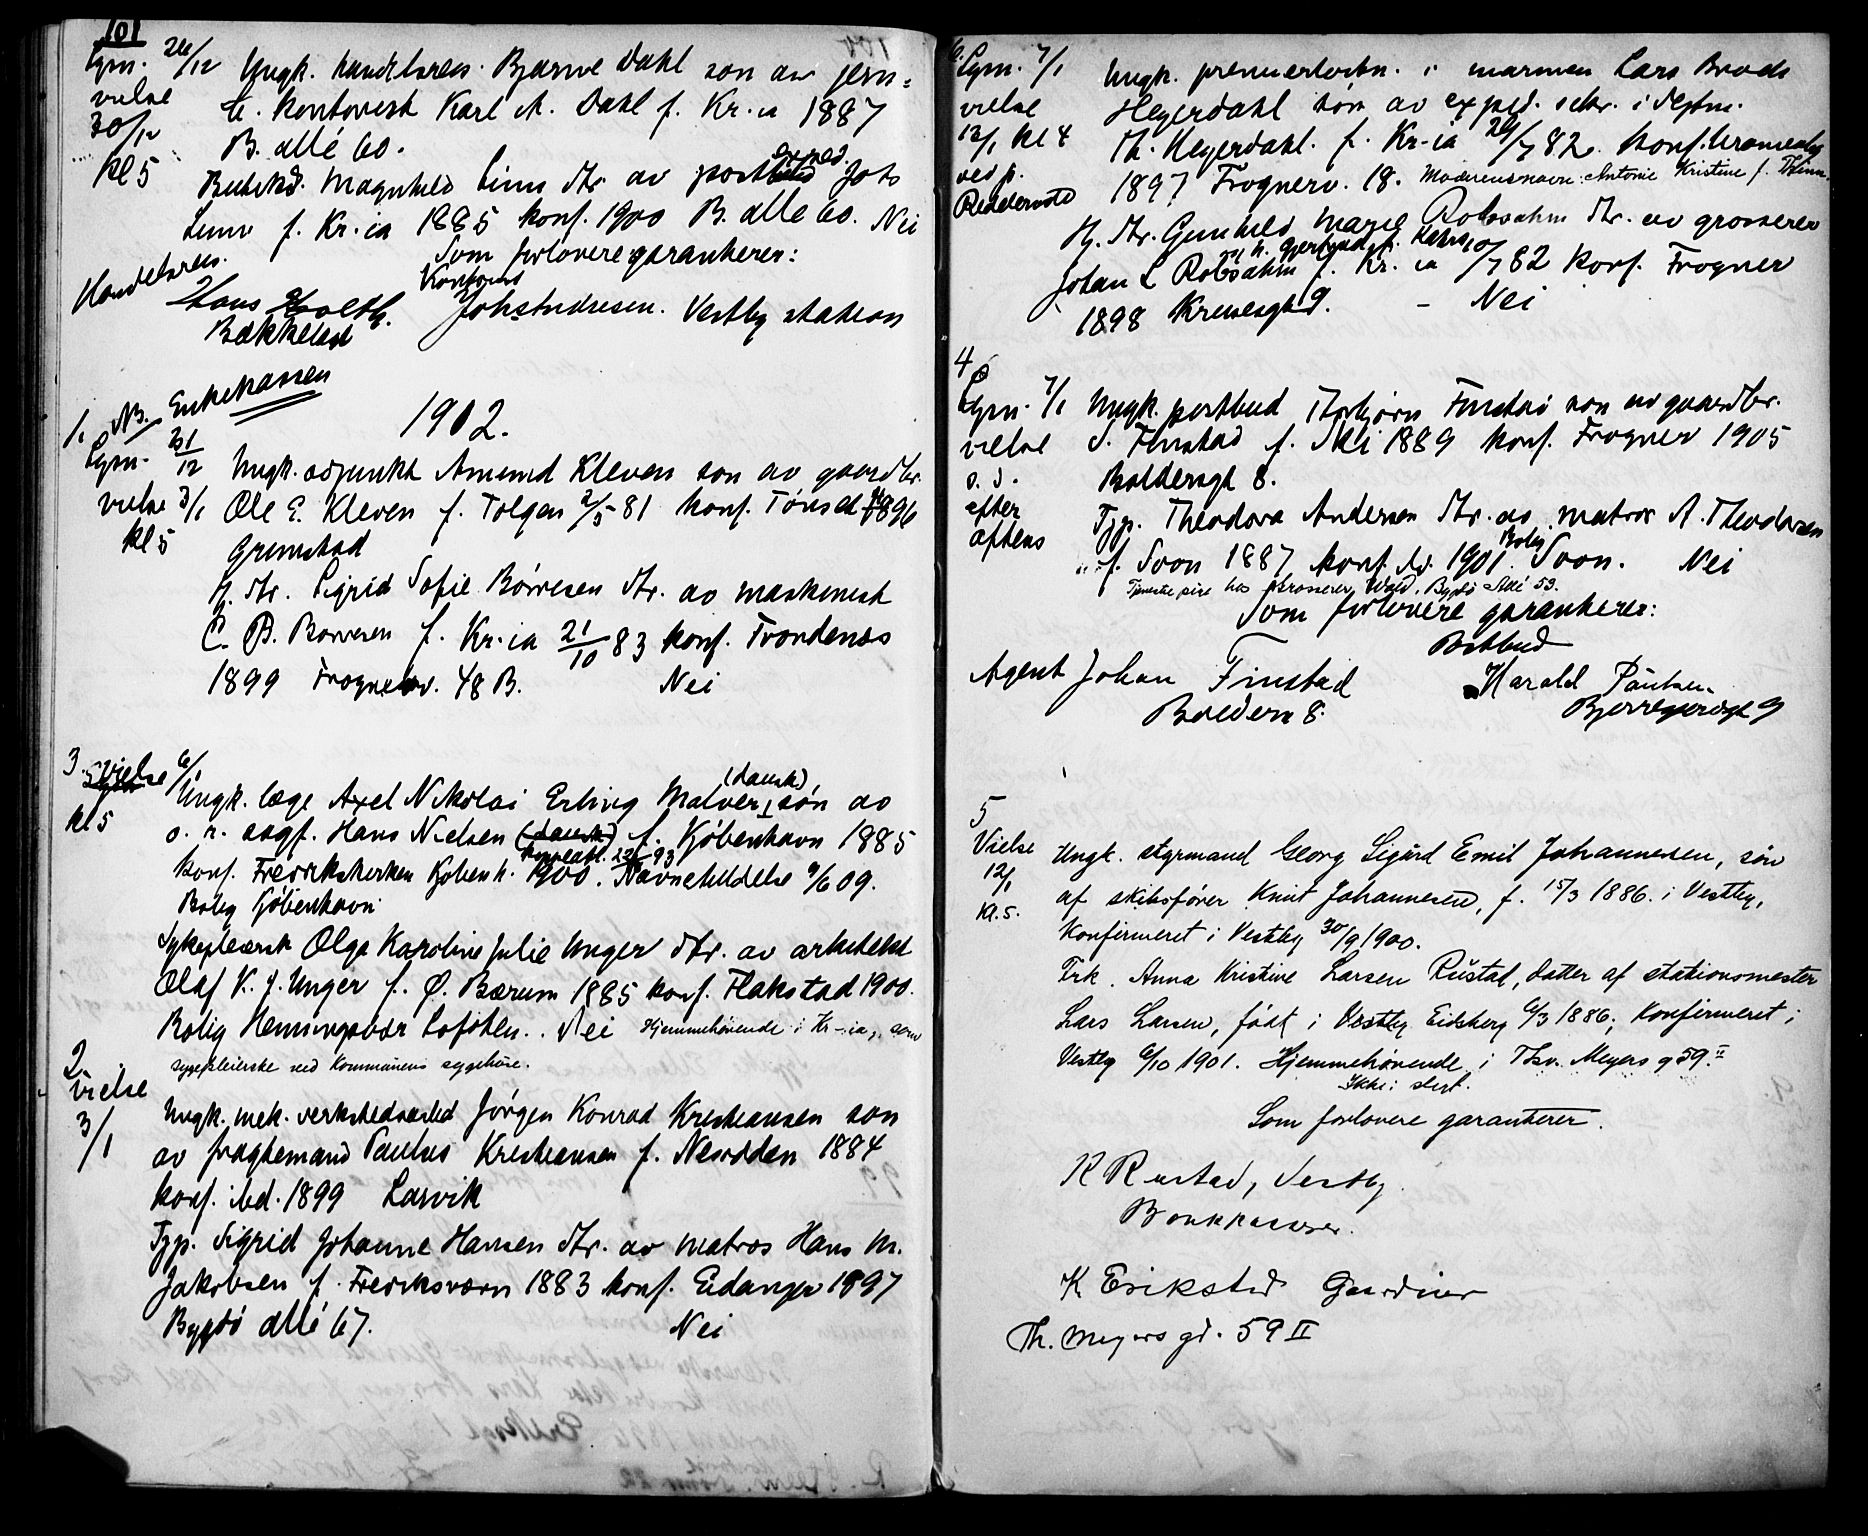 101
Lysn. 26/12 Ungk. handelsreis. Bjarne Dahl søn av jern=
vielse b. kontorist Karl M. Dahl f. Kr.ia 1887
30/12 B. allé 60.
kl 5 Butikd. Magnhild Linn dtr. av postexped. Johs
Linn f. Kr.ia 1885 konf. 1900 B. allé 60. Nei
Som forlovere garanterer:
Handelsreis. Kontorist
Hans Holth. Joh. Andresen. Vestby station
Bækkelaget
NB. Enkekassen
1902.
1.
Lysn. 31/12 Ungk. adjunkt Amund Kleven søn av gaardbr.
vielse 3/1 Ole E. Kleven f. Tolgen 2/5 81 konf. Tönset 1896
kl 5 Grimstad
Hj. dtr. Sigrid Sofie Börresen dtr. av maskinist
C. B. Börresen f. Kr.ia 21/10 83 konf. Trondenes
1899 Frognerv. 48 B. Nei
3. Vielse 6/1
Ungk. læge Axel Nikolai Erling Malver (dansk), søn av
kl 5 o. r. sagf. Hans Nielsen (dansk) f. Kjöbenhavn 1885
konf. Fredrikskirken Kjöbenh. 1900. Navnetildelse 9/6 09.
Bolig Kjöbenhavn.
Sykepleiersk Olga Karoline Julie Unger dtr. av arkitekt
Olaf V. J. Unger f. Ø. Bærum 1885 konf. Flakstad 1900.
Bolig Henningsvær Lofoten. Nei Hjemmehörende i Kr.ia, som
sygepleierske ved kommunens sygehuse.
2.
Vielse
3/1 Ungk. mek. verkstedsarbd Jörgen Konrad Kristiansen søn
av fragtemand Paulus Kristiansen f. Nesodden 1884
konf. ibd. 1899 Larvik
Tjp. Sigrid Johanne Hansen dtr. av matros Hans M.
Jakobsen f. Fredriksværn 1883 konf. Eidanger 1897
Bygdö allé 67. Nei
Lysn. 7/1 Ungk. premierløitn. i marinen Lars Brodt
vielse Heyerdahl søn av exped. sekr. i deptm.
13/1 kl 4 Th. Heyerdahl. f. Kr-ia 29/7 82. konf. Uranienbg
ved p. 1897 Frognerv. 18. Moderens navn: Antonie Kristine f.
Reddervold
Hj. dtr. Gunhild Marie Robsahm dtr. av grosserer
Johan L Robsahm f. Kr. ia 10/7 82 konf. Frogner
1898 Kruses gt 9. - Nei
4
Lysn. 7/1 Ungk. postbud Thorbjørn Finstad søn av gaardbr.
vielse S. Finstad f. Ski 1889 konf. Frogner 1905
s. d. Baldersgt 8.
efter
aftens Tjp. Theodora Andersen dtr. av matros A. Theodorsen
f. Soon 1887 konf. do. 1901. Bolig Soon. Nei
Tjeneste pike hos Grosserer Wold, Bygdö Allé 53.
Som forlovere garanterer:
Postbud
Agent Johan Finstad Harald Paulsen
Baldersg 8. Bjerregaardsgt 9
5
Vielse
12/1
Kl. 5.
Ungk. styrmand Georg Sigurd Emil Johannesen, søn
af skibsfører Knut Johannesen, f. 15/3 1886. i Vestby,
Konfirmeret i Vestby 30/9 1900.
Frk. Anna Kristine Larsen Rustad, datter af stationsmester
Lars Larsen, født i Vestby Eidsberg 6/3 1886; Konfirmeret i
Vestby 6/10 1901. Hjemmehørende i Thv. Meyers g 59 II
Ikke i slegt.
Som forlovere garanterer.
K Rustad, Vestby
Bankkasserer.
K Erikstad Gardiner
Th. Meyers gd. 59 II